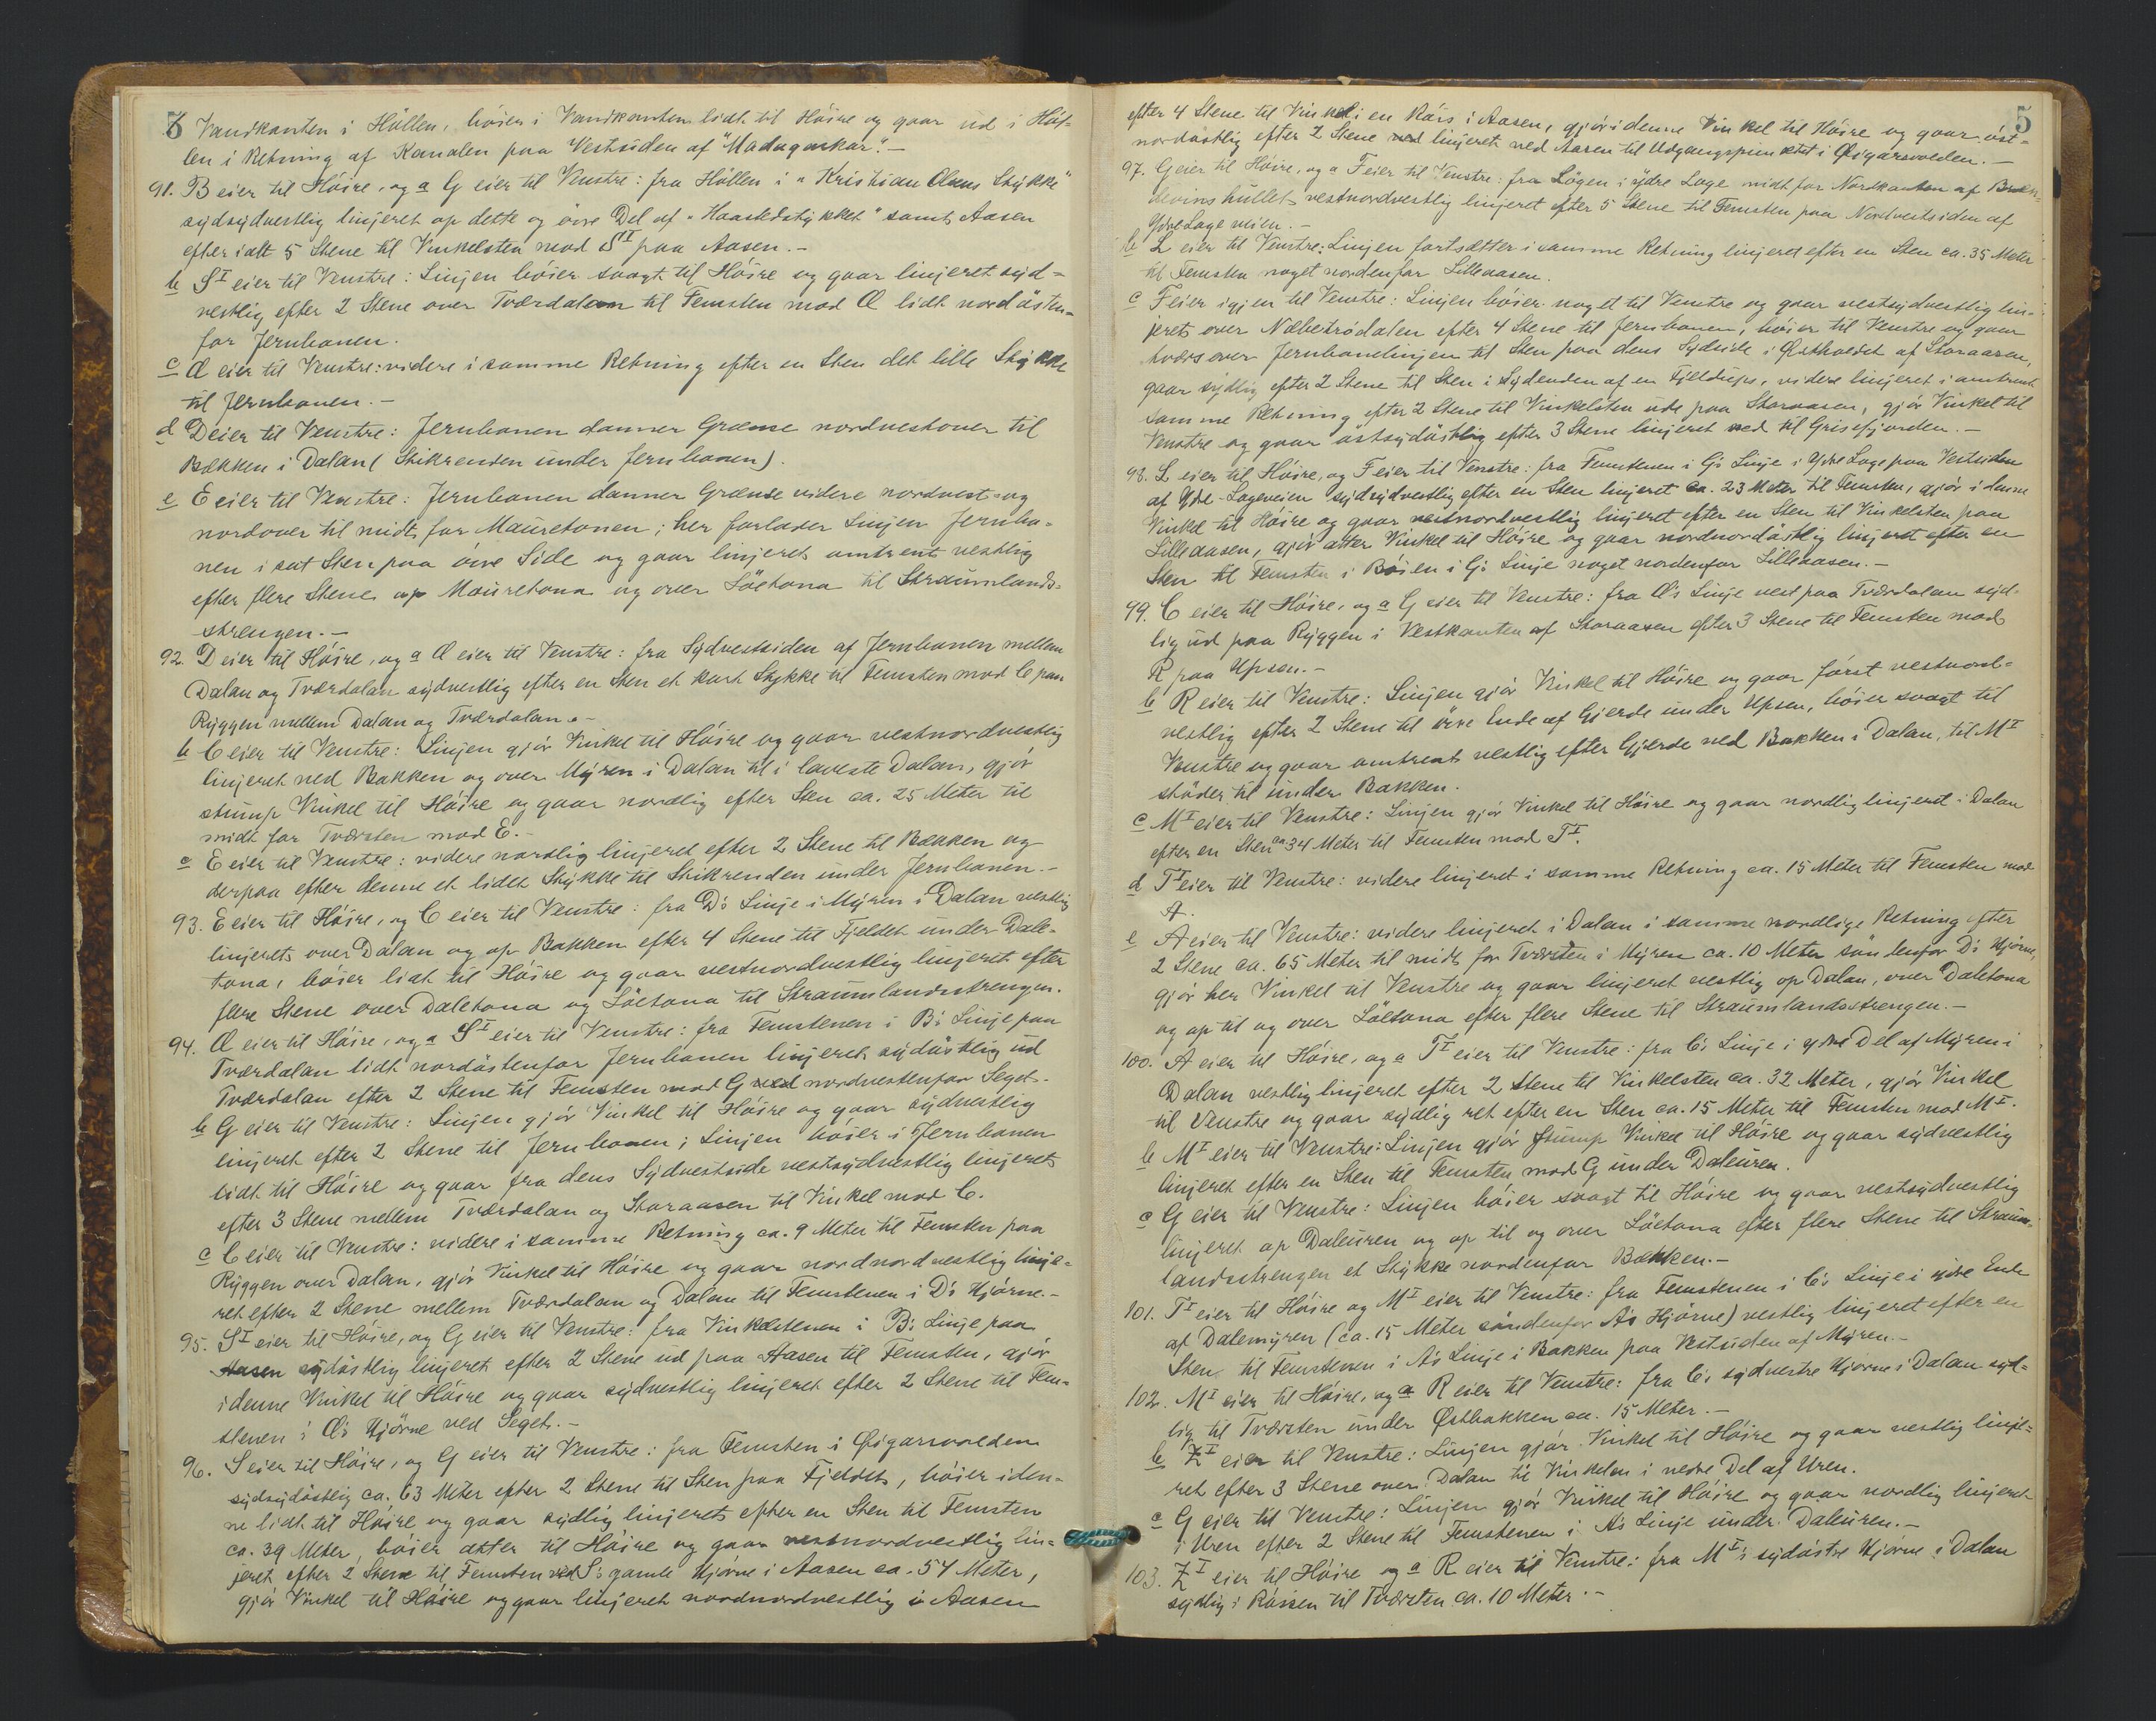 6 Vandkanten i Höllen, böier i Vandkanten lidt til Höire og gaar ud i Höl-
len i Retning af Kanalen paa Vestsiden af "Madagaskar".-
91. B eier til Höire, og a G eier til Venstre: fra Höllen i "Kristian Olsens Stykke"
sydsydvestlig linjeret op dette og övre Del af "Haastedstykket" samt Aasen
efter ialt 5 Stene til Vinkelsten mod S I paa Aasen.-
b S I eier til Venstre: Linjen böier svagt til Höire og gaar linjeret syd-
vestlig efter 2 Stene over Tværdalen til Femsten mod Æ lidt nordösten-
for Jernbanen.
c Æ eier til Venstre: videre i samme Retning efter en Sten det lille Stykke
til Jernbanen.-
d D eier til Venstre: Jernbanen danner Grænse nordvestover til
Bækken i Dalan (Stikrenden under Jernbanen).
e E eier til Venstre: Jernbanen danner Grænse videre nordvest- og
nordover til midt for Mauretonen; her forlader Linjen Jernba-
nen i sat Sten paa övre Side og gaar linjeret omtrent vestlig
efter flere Stene op Mauretona og over Löetona til Straumlands-
strengen.-
92. D eier til Höire, og a Æ eier til Venstre: fra Sydvestsiden af Jernbanen mellem
Dalan og Tværdalan sydvestlig efter en Sten et kort Stykke til Femsten mod C paa
Ryggen mellem Dalan og Tværdalan.-
b C eier til Venstre: Linjen gjör Vinkel til Höire og gaar vestnordvestlig
linjeret ned Bakken og over Myren i Dalan til i laveste Dalan, gjör
stump Vinkel til Höire og gaar nordlig efter Sten ca. 25 Meter til
midt for Tværsten mod E.-
c E eier til Venstre: videre nordlig linjeret efter 2 Stene til Bækken og
derpaa efter denne et lidet Stykke til Stikrenden under Jernbanen.-
93. E eier til Höire, og C eier til Venstre: fra D's Linje i Myren i Dalan vestlig
linjeret over Dalan og op Bakken efter 4 Stene til Fjeldet under Dale-
tona, böier lidt til Höire og gaar vestnordvestlig linjeret efter
flere Stene over Daletona og Löetona til Straumlandsstrengen.
94. Æ eier til Höire, og a S I eier til Venstre: fra Femstenen i B's Linje paa
Tværdalan lidt nordöstenfor Jernbanen linjeret sydöstlig ud
Tværdalan efter 2 Stene til Femsten mod G ved nordvestenfor Seget.-
b G eier til Venstre: Linjen gjör Vinkel til Höire og gaar sydvestlig
linjeret efter 2 Stene til Jernbanen; Linjen böier i Jernbanen
lidt til Höire og gaar fra dens Sydvestside vestsydvestlig linjeret
efter 3 Stene mellem Tværdalan og Storaasen til Vinkel mod C.
c C eier til Venstre: videre i samme Retning ca. 9 Meter til Femsten paa
Ryggen over Dalan, gjör Vinkel til Höire og gaar nordnordvestlig linje-
ret efter 2 Stene mellem Tværdalan og Dalan til Femstenen i D's Hjörne.-
95. S I eier til Höire, og G eier til Venstre: fra Vinkelstenen i B's Linje paa
Aasen sydöstlig linjeret efter 2 Stene ud paa Aasen til Femsten, gjör
i denne Vinkel til Höire og gaar sydvestlig linjeret efter 2 Stene til Fem-
stenen i Æ's Hjörne ved Seget.-
96. S eier til Höire, og G eier til Venstre: fra Femsten i Øigarsvolden
sydsydöstlig ca. 63 Meter efter 2 Stene til Sten paa Fjeldet, böier i den-
ne lidt til Höire og gaar sydlig linjeret efter en Sten til Femsten
ca. 39 Meter, böier atter til Höire og gaar vestnordvestlig lin-
jeret efter 2 Stene til Femsten ved S's gamle Hjörne i Aasen ca. 54 Meter,
gjör Vinkel til Höire og gaar linjeret nordnordvestlig i Aasen
5
efter 4 Stene til Vinkel i en Rös i Aasen, gjör i denne Vinkel til Höire og gaar öst-
nordöstlig efter 2 Stene linjeret ned Aasen til Udgangspunktet i Øigarsvolden.-
97. G eier til Höire, og a F eier til Venstre: fra Lögen i ydre Lage midt for Nordkanten af
vestnordvestlig linjeret efter 5 Stene til Femsten paa Nordvestsiden af
Ydre Lage veien.-
b L eier til Venstre: Linjen fortsætter i samme Retning linjeret efter en Sten ca. 35 Meter
til Femsten noget nordenfor Lilleaasen.
c F eier igjen til Venstre: Linjen böier noget til Venstre og gaar vestsydvestlig lin-
jeret over Næbetrödalen efter 4 Stene til Jernbanen, böier til Venstre og gaar
tværs over Jernbanelinjen til Sten paa dens Sydside i Østholdet af Storaasen,
gaar sydlig efter 2 Stene til Sten i Sydenden af en Fjeldups, videre linjeret i omtrent
samme Retning efter 2 Stene til Vinkelsten ude paa Storaasen, gjör Vinkel til
Venstre og gaar östsydöstlig efter 3 Stene linjeret ned til Grisefjorden.-
98. L eier til Höire, og F eier til Venstre: fra Femstenen i G's Linje i Ydre Lage paa Vestsiden
af Ydre-Lageveien sydsydvestlig efter en Sten linjeret ca. 23 Meter til Femsten, gjör i denne
Vinkel til Höire og gaar vestnordvestlig linjeret efter en Sten til Vinkelsten paa
Lilleaasen, gjör atter Vinkel til Höire og gaar nordnordöstlig linjeret efter en
Sten til Femsten i Böien i G's Linje noget nordenfor Lilleaasen.-
99. C eier til Höire, og a G eier til Venstre: fra Æ's Linje vest paa Tværdalan syd-
lig ud paa Ryggen i Vestkanten af Storaasen efter 3 Stene til Femsten mod
R paa Upsen.-
b R eier til Venstre: Linjen gjör Vinkel til Höire og gaar först vestnord-
vestlig efter 2 Stene til övre Ende af Gjerde under Upsen, böier svagt til
Venstre og gaar omtrent vestlig efter Gjerde ned Bakken i Dalan, til M I
stöder til under Bakken.
c M I eier til Venstre: Linjen gjör Vinkel til Höire og gaar nordlig linjeret i Dalan
efter en Sten ca 34 Meter til Femsten mod T I.
d T I eier til Venstre: videre linjeret i samme Retning ca. 15 Meter til Femsten mod
A.
e A eier til Venstre: videre linjeret i Dalan i samme nordlige Retning efter
2 Stene ca. 65 Meter til midt for Tværsten i Myren ca. 10 Meter söndenfor D's Hjörne,
gjör her Vinkel til Venstre og gaar linjeret vestlig op Dalan, over Daletona
og op til og over Löetona efter flere Stene til Straumlandsstrengen.-
100. A eier til Höire, og a T I eier til Venstre: fra C's Linje i ydre Del af Myren i
Dalan vestlig linjeret efter 2 Stene til Vinkelsten ca. 32 Meter, gjör Vinkel
til Venstre og gaar sydlig ret efter en Sten ca. 15 Meter til Femsten mod M I.
b M I eier til Venstre: Linjen gjör stump Vinkel til Höire og gaar sydvestlig
linjeret efter en Sten til Femsten mod G under Daleuren.
c G eier til Venstre: Linjen böier svagt til Höire og gaar vestsydvestlig
linjeret op Daleuren og op til og over Löetona efter flere Stene til Straum-
landsstrengen et Stykke nordenfor Bækken.-
101. T I eier til Höire og M I eier til Venstre: fra Femstenen i C's Linje i ydre Ende
af Dalemyren (ca. 15 Meter söndenfor A's Hjörne) vestlig linjeret efter en
Sten til Femstenen i A's Linje i Bakken paa Vestsiden af Myren.-
102. M I eier til Höire, og a R eier til Venstre: fra C's sydvestre Hjörne i Dalan syd-
lig til Tværsten under Østbakken ca. 15 Meter.-
b Z I eier til Venstre: Linjen gjör Vinkel til Höire og gaar vestlig linje-
ret efter 3 Stene over Dalan til Vinkelen i nedre Del af Uren.
c G eier til Venstre: Linjen gjör Vinkel til Höire og gaar nordlig linjeret
i Uren efter 2 Stene til Femstenen i A's Linje under Daleuren.-
103. Z I eier til Höire og a R eier til Venstre: fra M I's sydöstre Hjörne i Dalan
sydlig i Röisen til Tværsten ca. 10 Meter.-